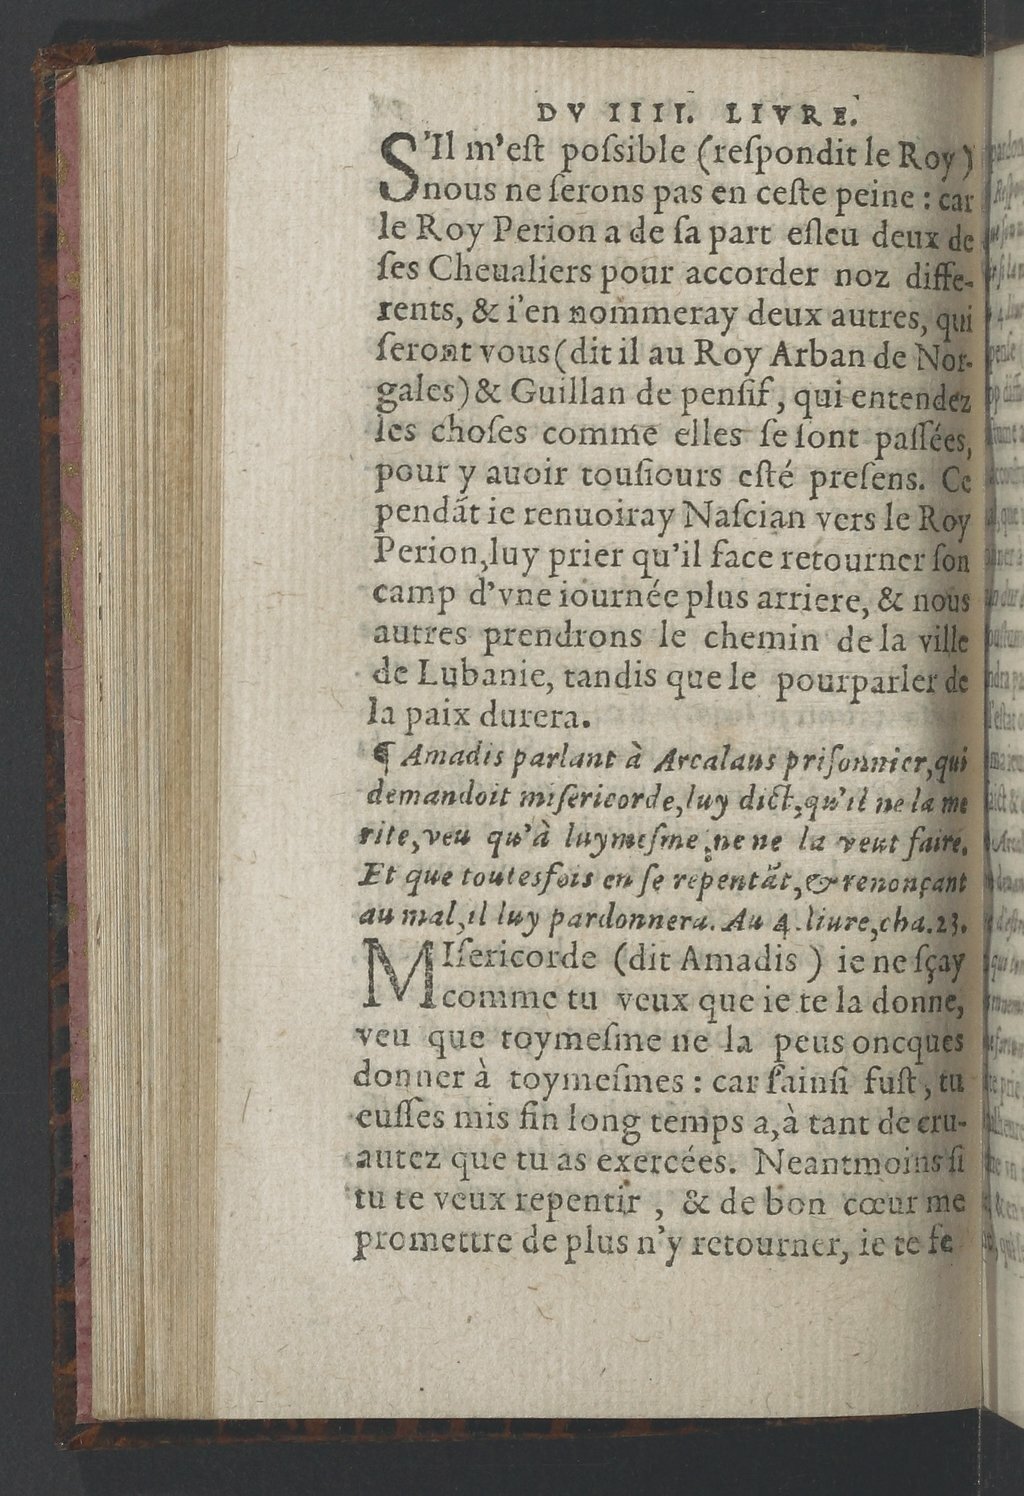 DV IIII. LIVRE.
S'Il m'eſt poſsible (reſpondit le Roy)
nous ne ſerons pas en ceſte peine : car
le Roy Perion a de ſa part eſleu deux de
ſes Cheualiers pour accorder noz diffe-
rents, & i'en nommeray deux autres, qui
ſeront vous (dit il au Roy Arban de Nor-
gales) & Guillan de penſif, qui entendez
les choſes comme elles ſe ſont paſſées,
pour y auoir touſiours eſté preſens. Ce
pendāt ie renuoiray Naſcian vers le Roy
Perion, luy prier qu'il face retourner ſon
camp d'vne iournée plus arriere, & nous
autres prendrons le chemin de la ville
de Lubanie, tandis que le pourparler de
la paix durera.
¶ Amadis parlant à Arcalaus priſonnier, qui
demandoit miſericorde, luy dict, qu'il ne la me
rite, veu qu'à luymeſme ne ne la veut faire.
Et que toutesfois en ſe repentāt, & renonçant
au mal, il luy pardonnera. Au 4. liure, cha. 23.
MIſericorde (dit Amadis ) ie ne ſçay
comme tu veux que ie te la donne,
veu que toymeſme ne la peus oncques
donner à toymeſmes : car ſainſi fuſt, tu
euſſes mis fin long temps a, à tant de cru-
autez que tu as exercées. Neantmoins ſi
tu te veux repentir , & de bon cœur me
promettre de plus n'y retourner, ie te fe